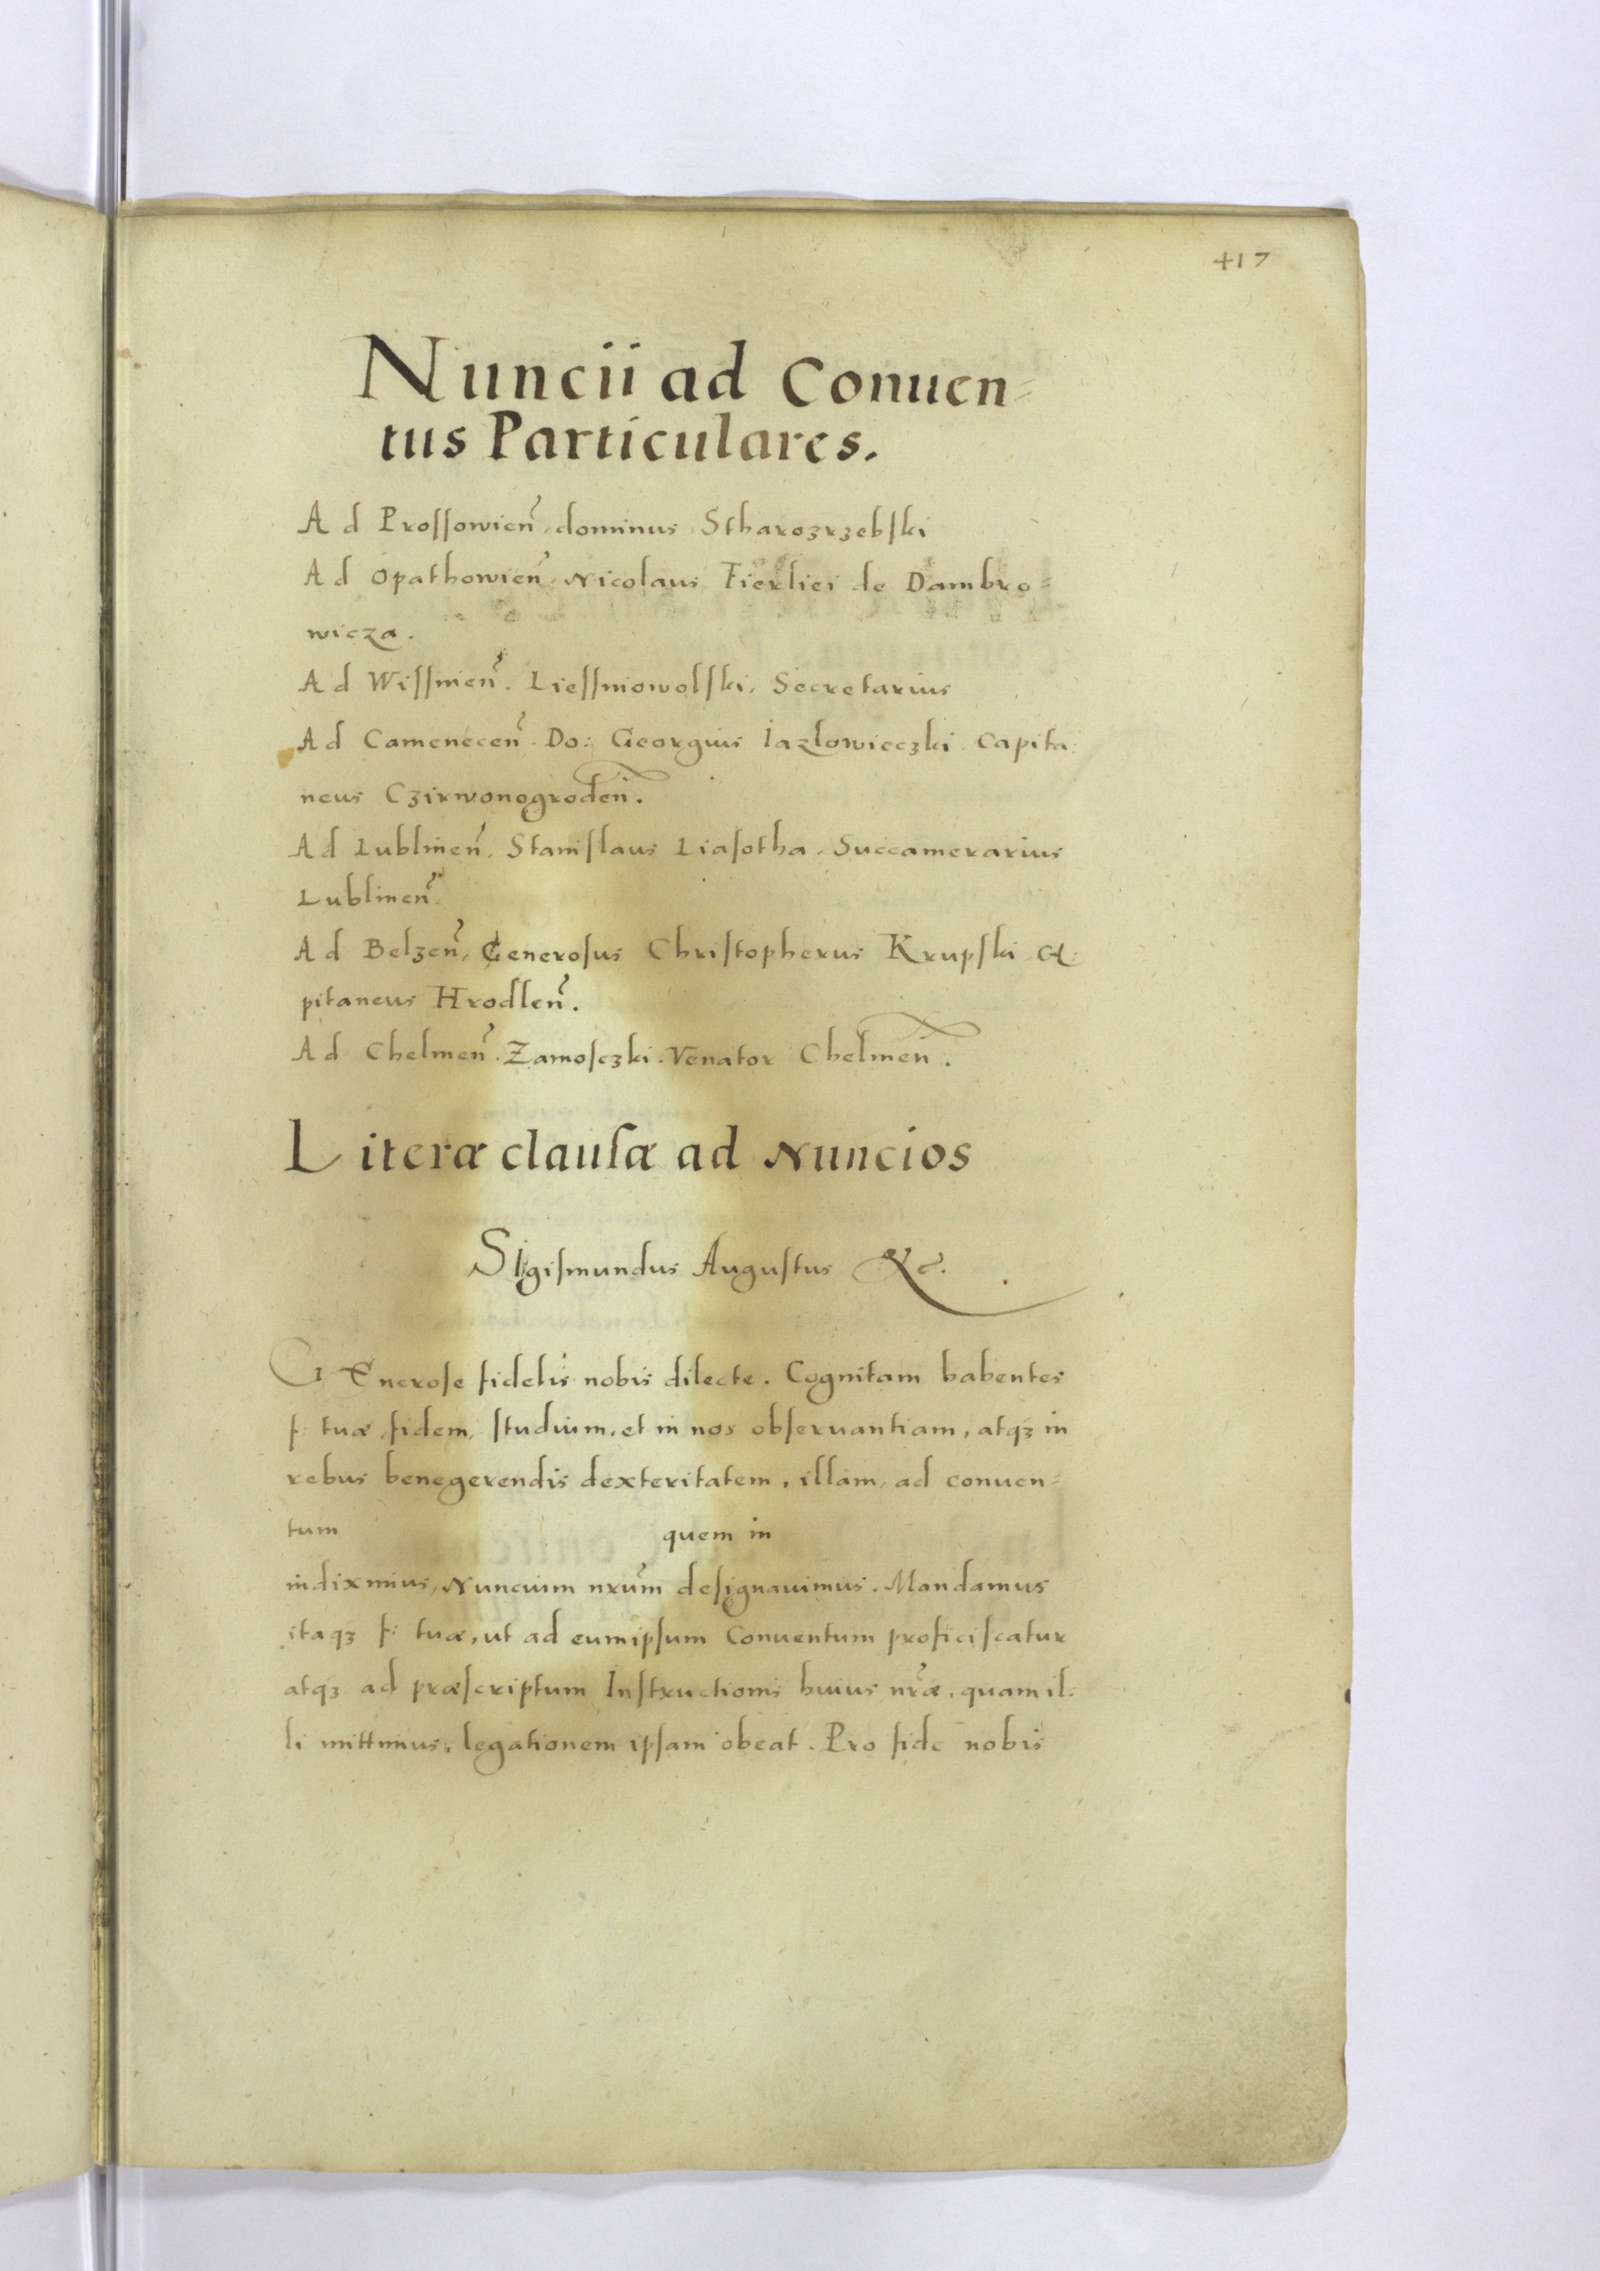 417
Nuncii ad Conuen=
tus Particulares.
Ad Prossowien̄, dominus Stharozrzebski
Ad Opathowien̄, Nicolaus Fierliei de Dambro=
wicza.
Ad Wissnien̄. Liessniowolski, Secretarius
Ad Camenecen̄. Do: Georgius Iazlowieczki Capita:
neus Czirwonogroden̄.
Ad Lublinen̄, Stanislaus Liasotha, Succamerarius
Lublinen̄.
Ad Belzen̄, Generosus Christopherus Krupski Ca:
pitaneus Hrodlen̄.
Ad Chelmen̄. Zamosczki. Venator Chelmen̄.
Literæ clausæ ad Nuncios
Sigismundus Augustus &c.
GEnerose fidelis nobis dilecte. Cognitam habentes
f: tuæ fidem, studium, et in nos obseruantiam, atqꝫ in
rebus benegerendis dexteritatem, illam, ad conuen=
tum quem in
indiximus, Nuncium nr̄um designauimus. Mandamus
itaqꝫ f: tuæ, ut ad eumipsum Conuentum proficiscatur
atqꝫ ad præscriptum Instructionis huius nr̄æ, quam il:
li mittimus, legationem ipsam obeat. Pro fide nobis